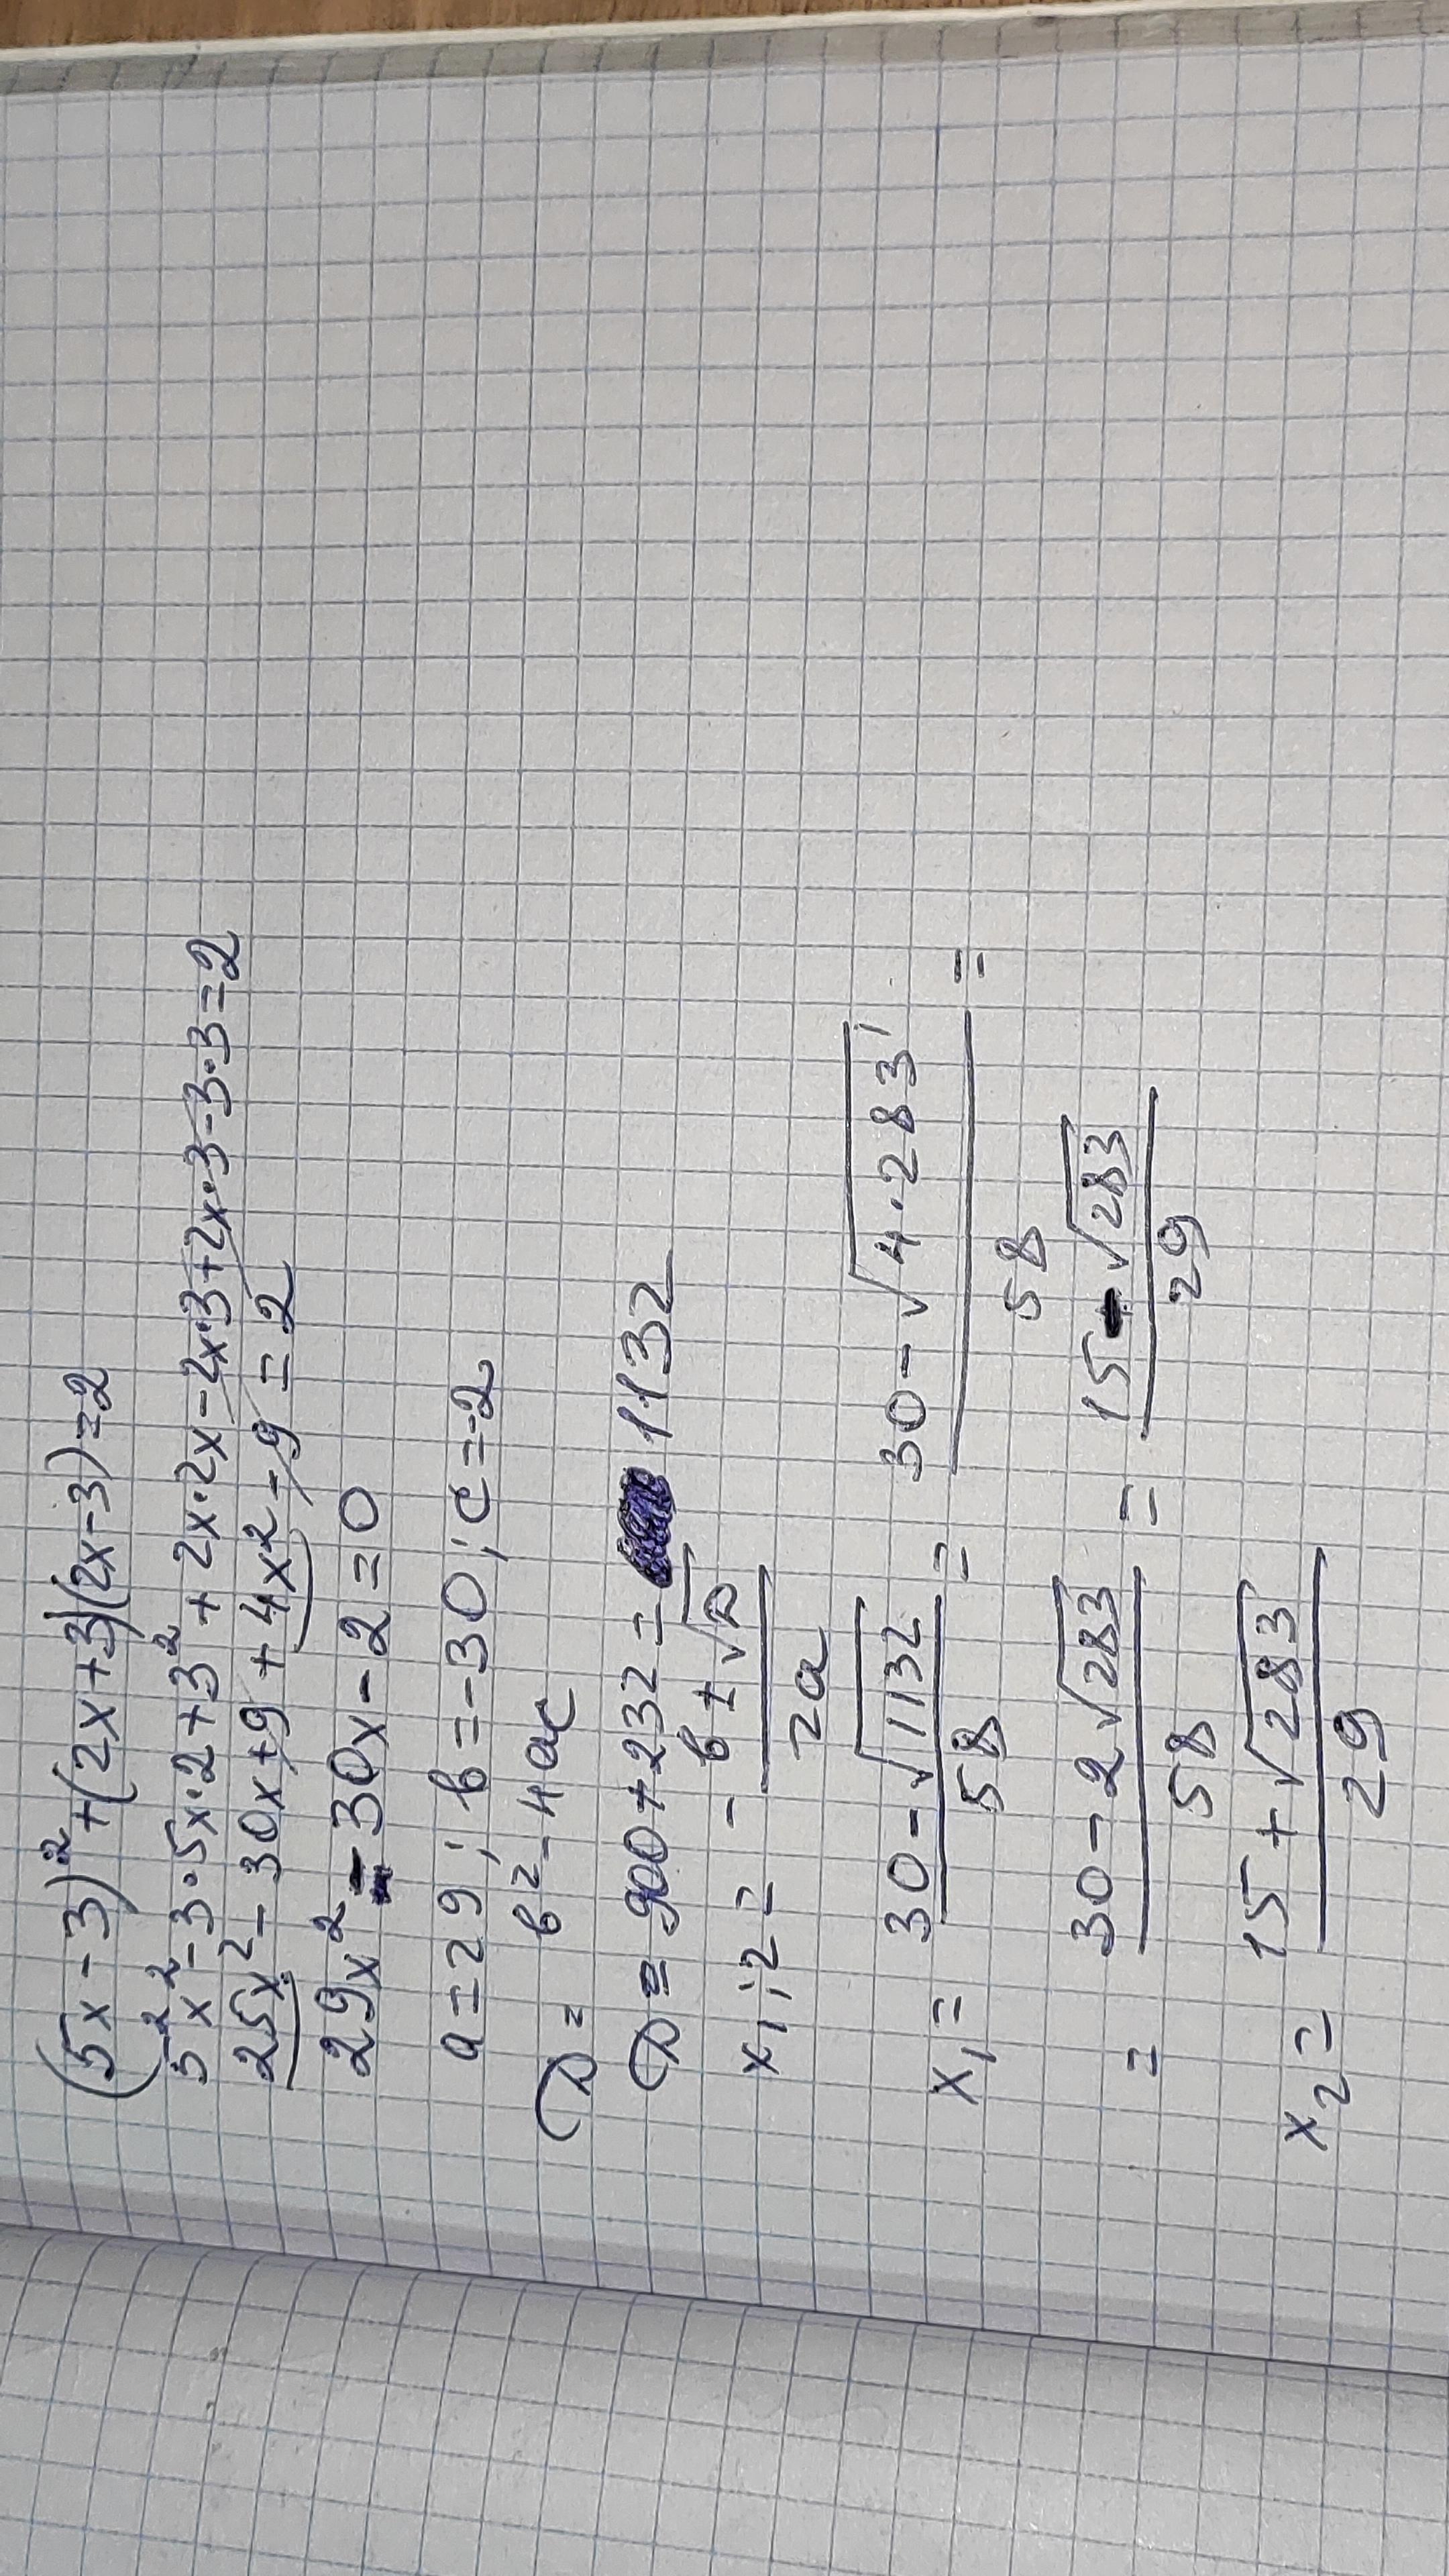 (5x-3)²+(2x+3)(2x-3)=2
5²x²-3·5x·2+3²+2x·2x-2x·3+2x·3-3·3=2
25x²-30x+9+4x²-9=2
29x²-30x-2=0
a=29; b=-30; c=-2
D= b²-4ac
D=900+232=1132
x₁;₂= -b±√D / 2a
x₁= 30-√1132 / 58 = 30-√4·283 / 58 =
= 30-2√283 / 58 = 15-√283 / 29
x₂= 15+√283 / 29